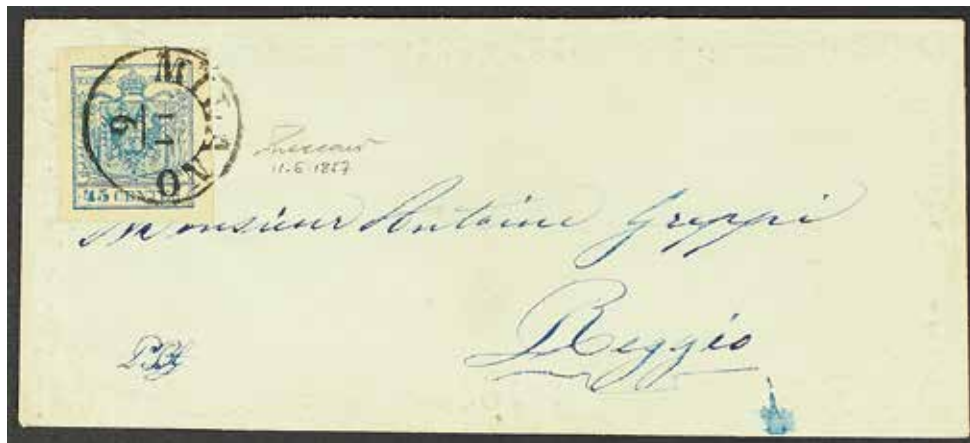 MILANO
11
6
45 CENTES
11.6.1857
Monsieur Antoine Greppi
Reggio